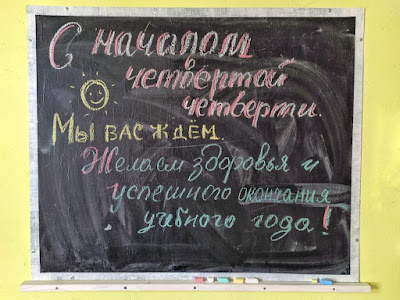 С началом
четвёртой
четверти.
Мы вас ждём.
Желаем здоровья и
успешного окончания
учебного года!